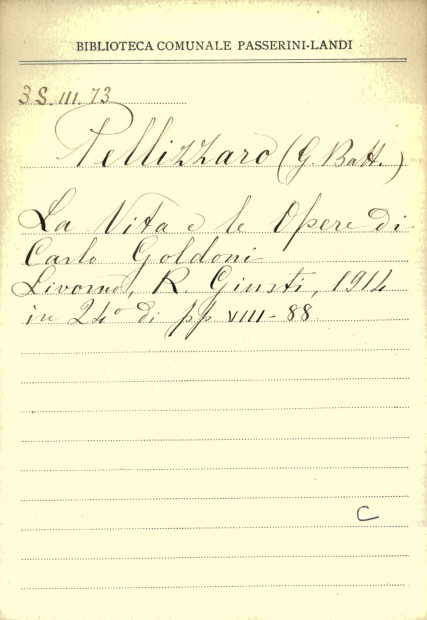 BIBLIOTECA COMUNALE PASSERINI-LANDI
3 S. III. 73
Pellizzaro (G. Batt.)
La Vita e le Opere di
Carlo Goldoni
Livorno, R. Giusti, 1914
in 24º di pp VIII-88
C